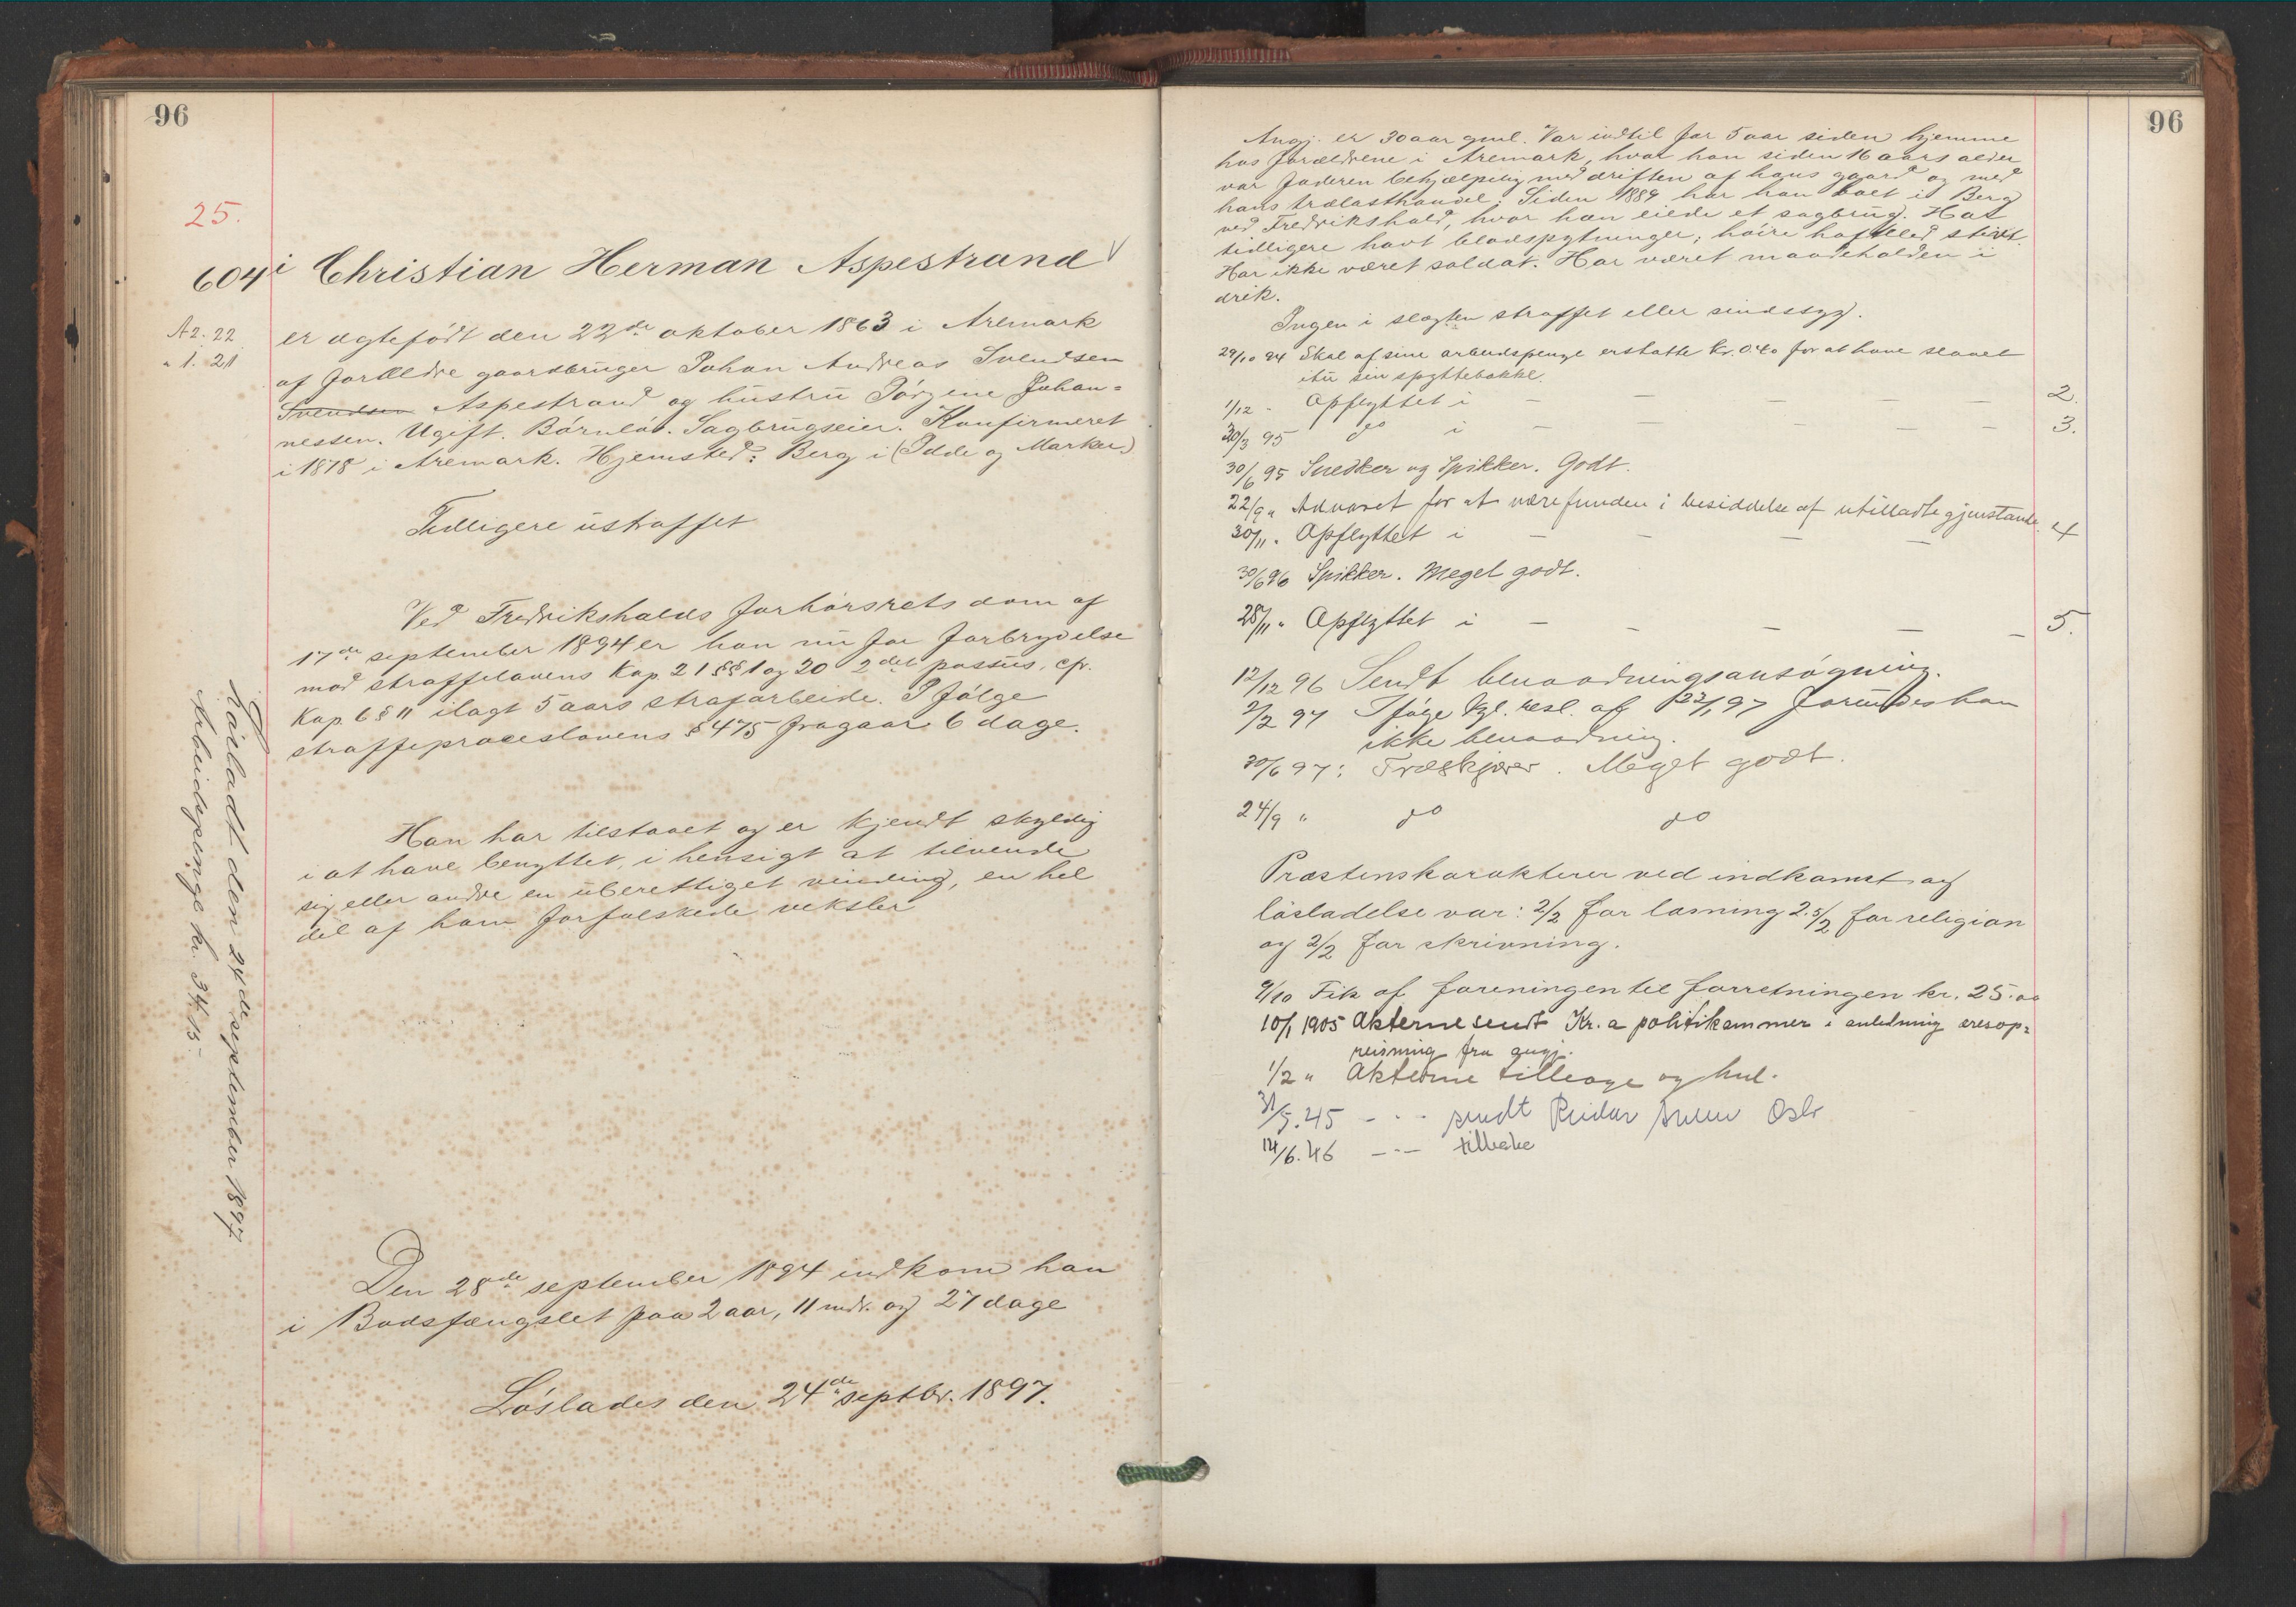 96
25.
604 i Christian Herman Aspestrand
A 2. 22
" 1. 21
er ægtefödt den 22de oktober 1863 i Aremark
af forældre gaardbruger Johan Andreas Svendsen
Svendsen Aspestrand og hustru Jörgine Johan=
nessen. Ugift. Barnlös. Sagbrugseier. Konfirmeret
i 1878 i Aremark. Hjemsted: Berg i (Idde og Marker)
Tidligere ustraffet
Ved Fredrikshalds forhörsrets dom af
17de september 1894 er han nu for forbrydelse
mod straffelovens kap 21 §§ 1 og 20 2det passus, cfr.
Kap 6 § 11 ilagt 5 aars strafarbeide. Ifölge
straffeproceslovens § 475 fragaar 6 dage.
Han har tilstaaet og er kjendt skyldig
i at have benyttet, i hensigt at tilvende
sig eller andre en uberettiget vinding, en hel
del af ham forfalskede veksler
Den 28de september 1894 indkom han
i Bodsfængslet paa 2 aar, 11 mdr. og 27 dage
Löslades den 24de septbr. 1897.
Lösladt den 24de september 1897
Arbeidspenge kr. 34.15.
96
Angj. er 30 aar gml. Var indtil for 5 aar siden hjemme
hos forældrene i Aremark, hvor han siden 16 aars alder
var faderen behjælpelig med driften af hans gaard og med
hans trælasthandel. Siden 1889 har han boet i Berg
ved Fredrikshald, hvor han eiede et sagbrug. Har
tidligere havt blodspytninger; höire hofteled stivt.
Har ikke været soldat. Har været maadeholden i
drik.
Ingen i slægten straffet eller sindssyg.
29/10 94 Skal af sine arbeidspenge erstatte kr. 0.40 for at have slaaet
itu sin spyttebakke.
1/12 - Opflyttet i — — — — — 2.
30/3 95 do i — — — — — 3.
30/6 95 Snedker og Spikker. Godt.
22/9 " Advaret for at være funden i besiddelse af utilladte gjenstande.
30/11 " Opflyttet i — — — — 4
30/6 96 Spikker. Meget godt.
28/11 " Opflyttet i — — — — — 5.
12/12 96 Sendt benaadningsansögning.
2/2 97 Ifölge kgl. resl. af 22/1 97 forundes han
ikke benaadning.
30/6 97: Træskjærer. Meget godt.
24/9 " do do
Præstens karakterer ved indkomst og
lösladelse var: 2/2 for læsning 2.5/2 for religion
og 2/2 for skrivning.
9/10 Fik af foreningen til forretningen kr. 25.00
10/1 1905 Akterne sendt Kr.a politikammer i anledning æresop=
reisning fra angj.
1/2 " Akterne tilbage og hnl.
31/5.45 – " – sendt Reidar Oslo
14/6.46 – " – tilbake